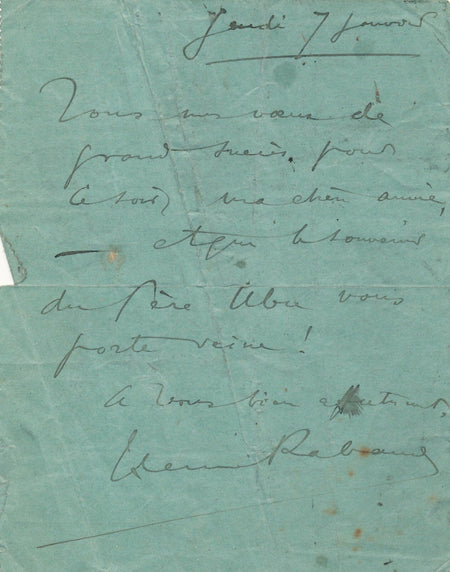 Jeudi 7 janvier
Tous mes vœux de
grand succès, pour
ce soir, ma chère amie,
— et que le souvenir
du Père Ubu vous
porte veine !
A vous bien affectueusement,
Henri Rabaud